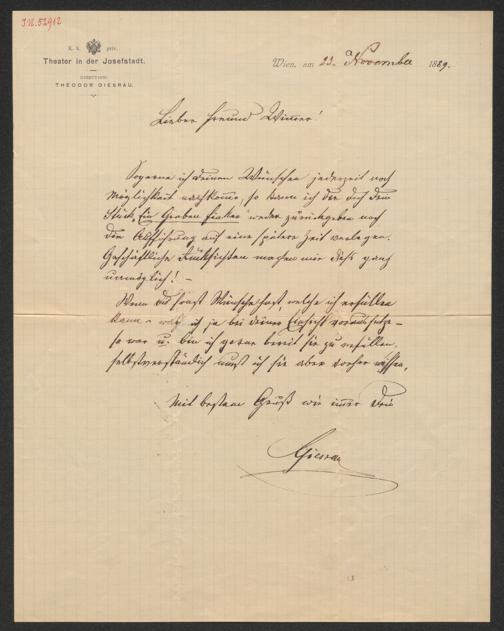 I.N. 52912
K. k. priv.
Theater in der Josefstadt.
DIRECTION:
THEODOR GIESRAU.
Wien, am 22. November 1889.
Lieber Freund Wimmer!
So gerne ich deinen Wünschen jederzeit nach
Möglichkeit nachkomme, so kann ich dir doch dein
Stück, Ein weder zurückgeben noch
die Aufführung auf eine spätere Zeit verlegen.
Geschäftliche Rücksichten machen mir dieß ganz
unmöglich! –
Wenn du sonst Wünsche hast, welche ich erfüllen
kann – was ich ja bei deiner Einsicht voraussetze –
so war u. bin ich gerne bereit sie zu erfüllen.
selbstverständlich muß ich sie aber vorher wissen.
Mit bestem Gruß wie immer Dein
Giesrau